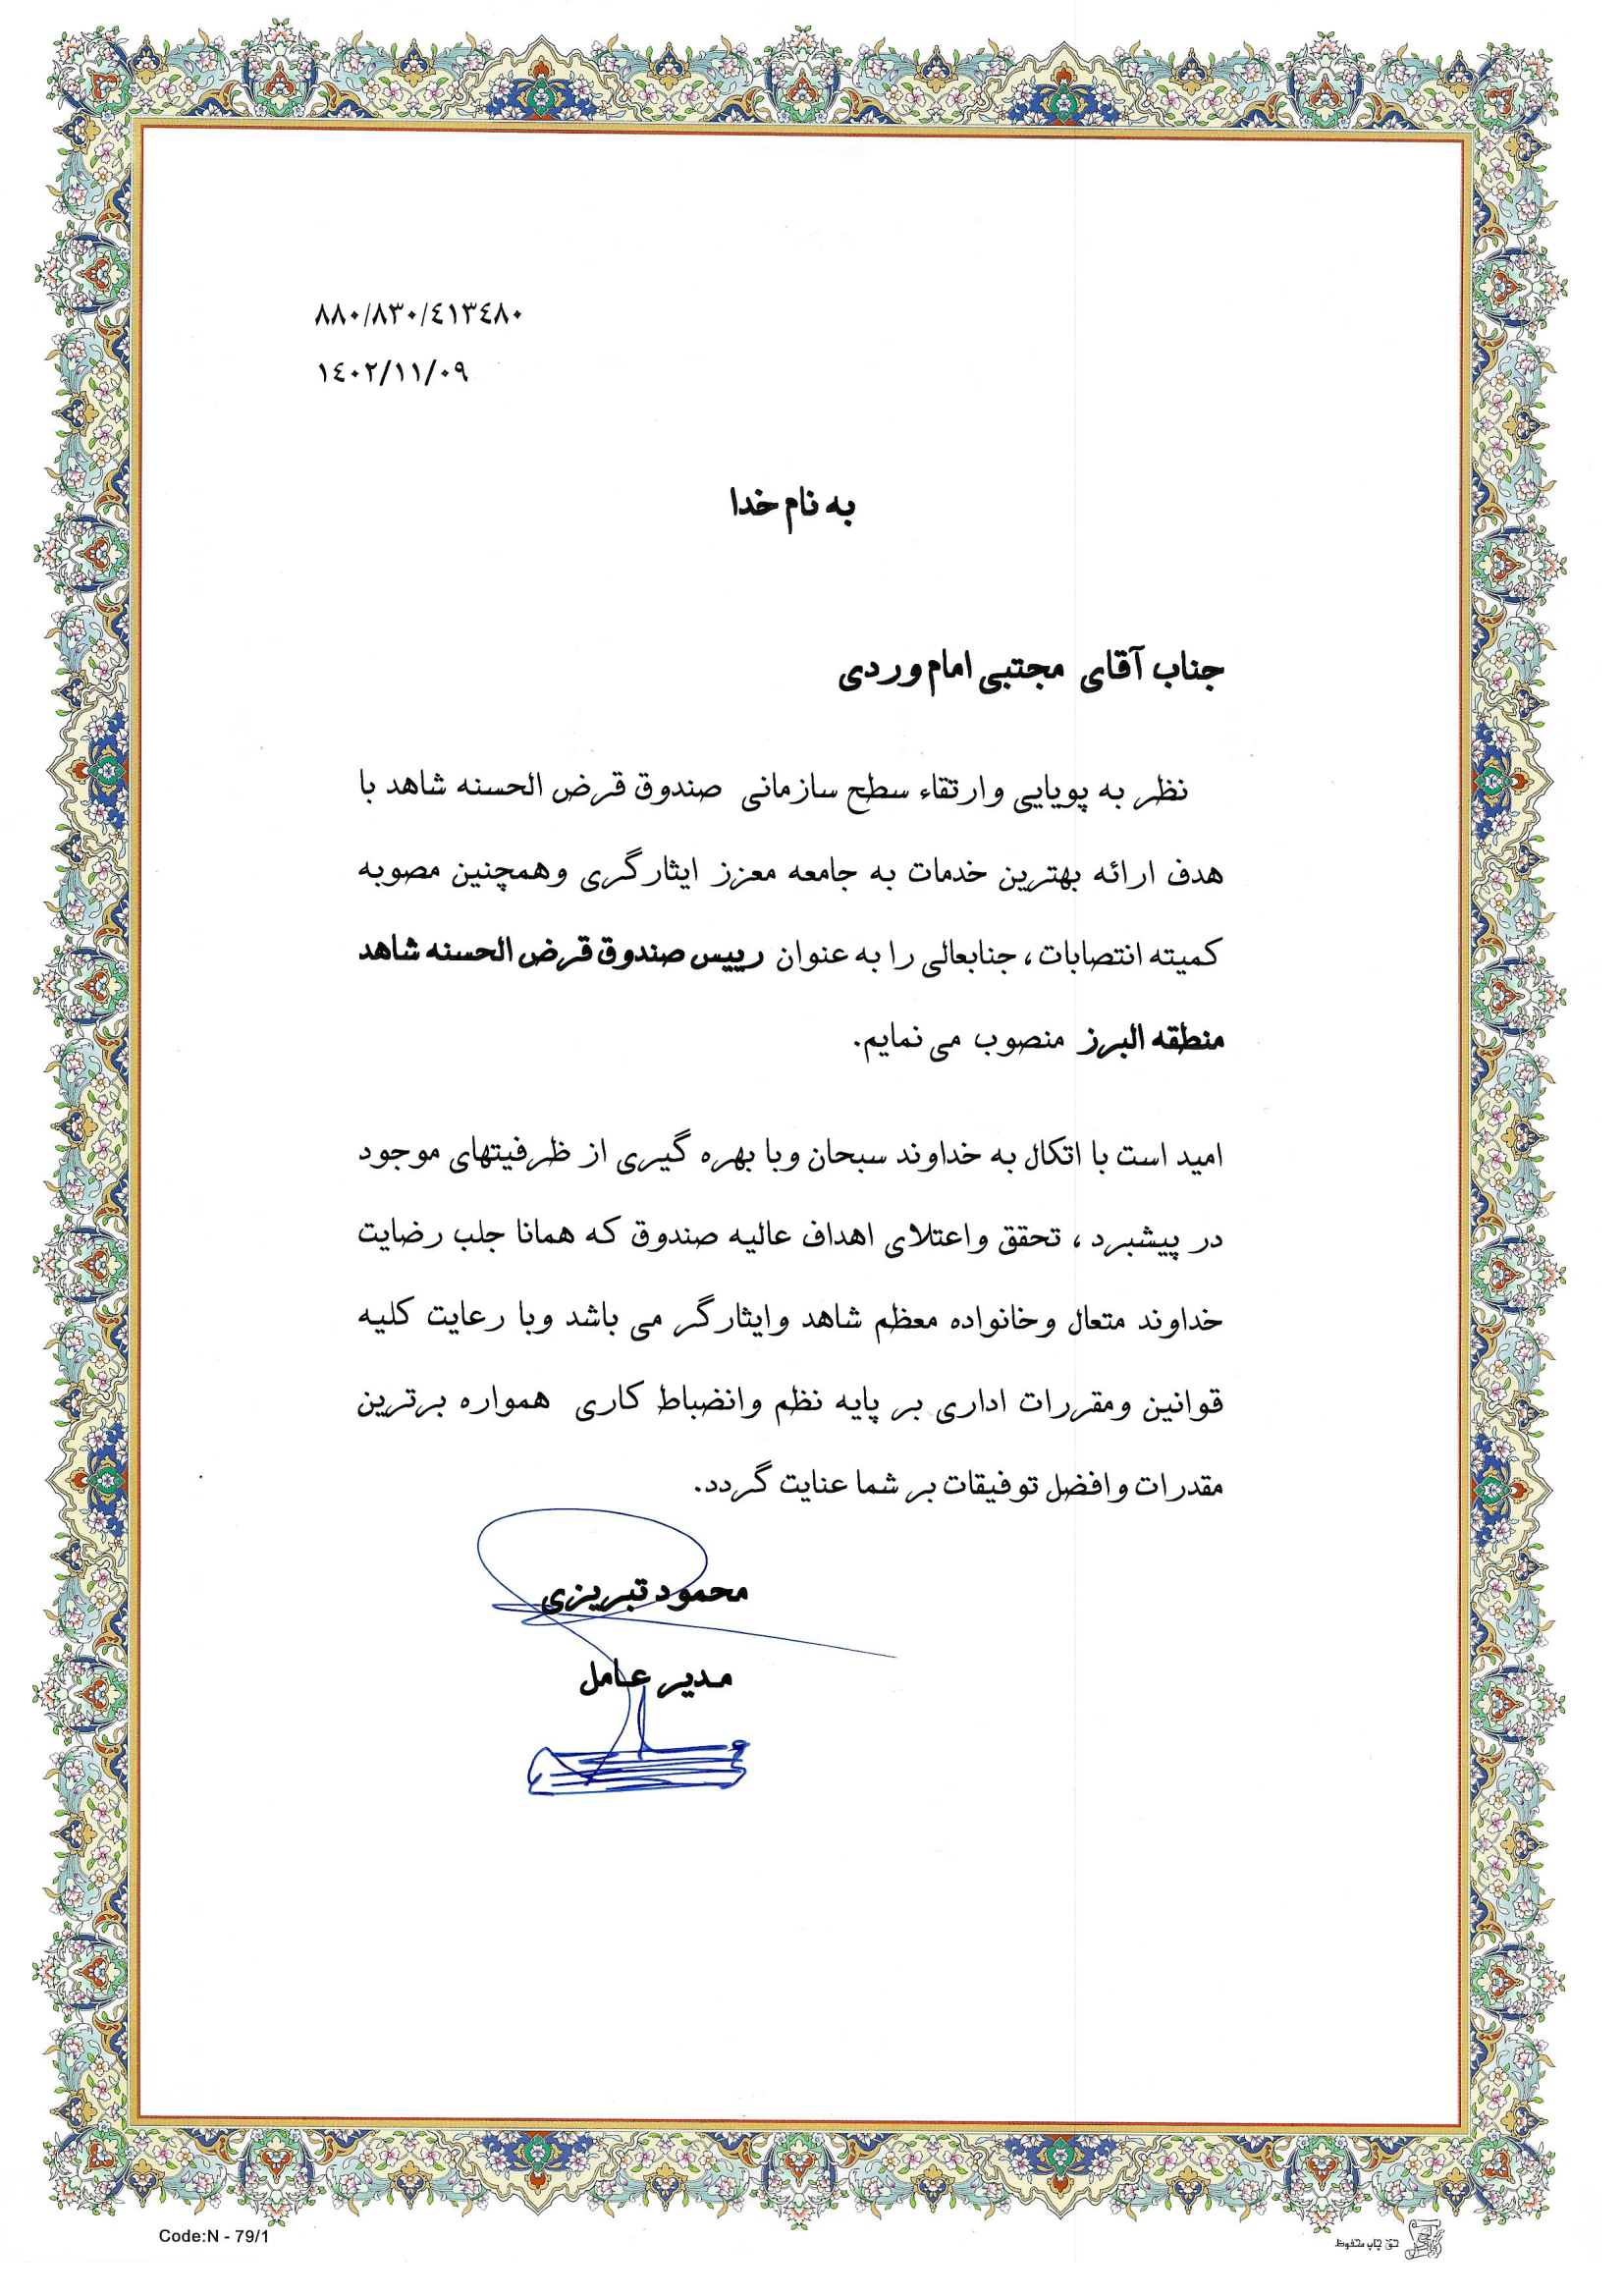 ٨٨٠/٨٣٠/٤١٣٤٨٠
١٤٠٢/١١/٠٩
به نام خدا
جناب آقای مجتبی امام وردی
نظر به پویایی وارتقاء سطح سازمانی صندوق قرض الحسنه شاهد با
هدف ارائه بهترین خدمات به جامعه معزز ایثارگری وهمچنین مصوبه
کمیته انتصابات، جنابعالی را به عنوان رییس صندوق قرض الحسنه شاهد
منطقه البرز منصوب می نمایم.
امید است با اتکال به خداوند سبحان وبا بهره گیری از ظرفیتهای موجود
در پیشبرد ، تحقق واعتلای اهداف عالیه صندوق که همانا جلب رضایت
خداوند متعال وخانواده معظم شاهد وایثارگر می باشد وبا رعایت کلیه
قوانین ومقررات اداری بر پایه نظم وانضباط کاری همواره برترین
مقدرات وافضل توفیقات بر شما عنایت گردد.
محمود تبریزی
مدیر عامل
Code:N - 79/1
حق چاپ محفوظ